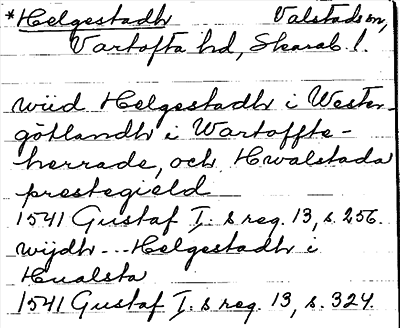 *Helgestadh Valstads sn,
Vartofta hd, Skarab. l.
wiid Helgestadh i Wester-
götlandh i Wartoffte-
herrade, och Hwalstada
prestegield
1541 Gustaf I:s reg. 13, s. 256.
wijdh --- Helgestadh i
Hualsta
1541 Gustaf I:s reg. 13, s. 324.